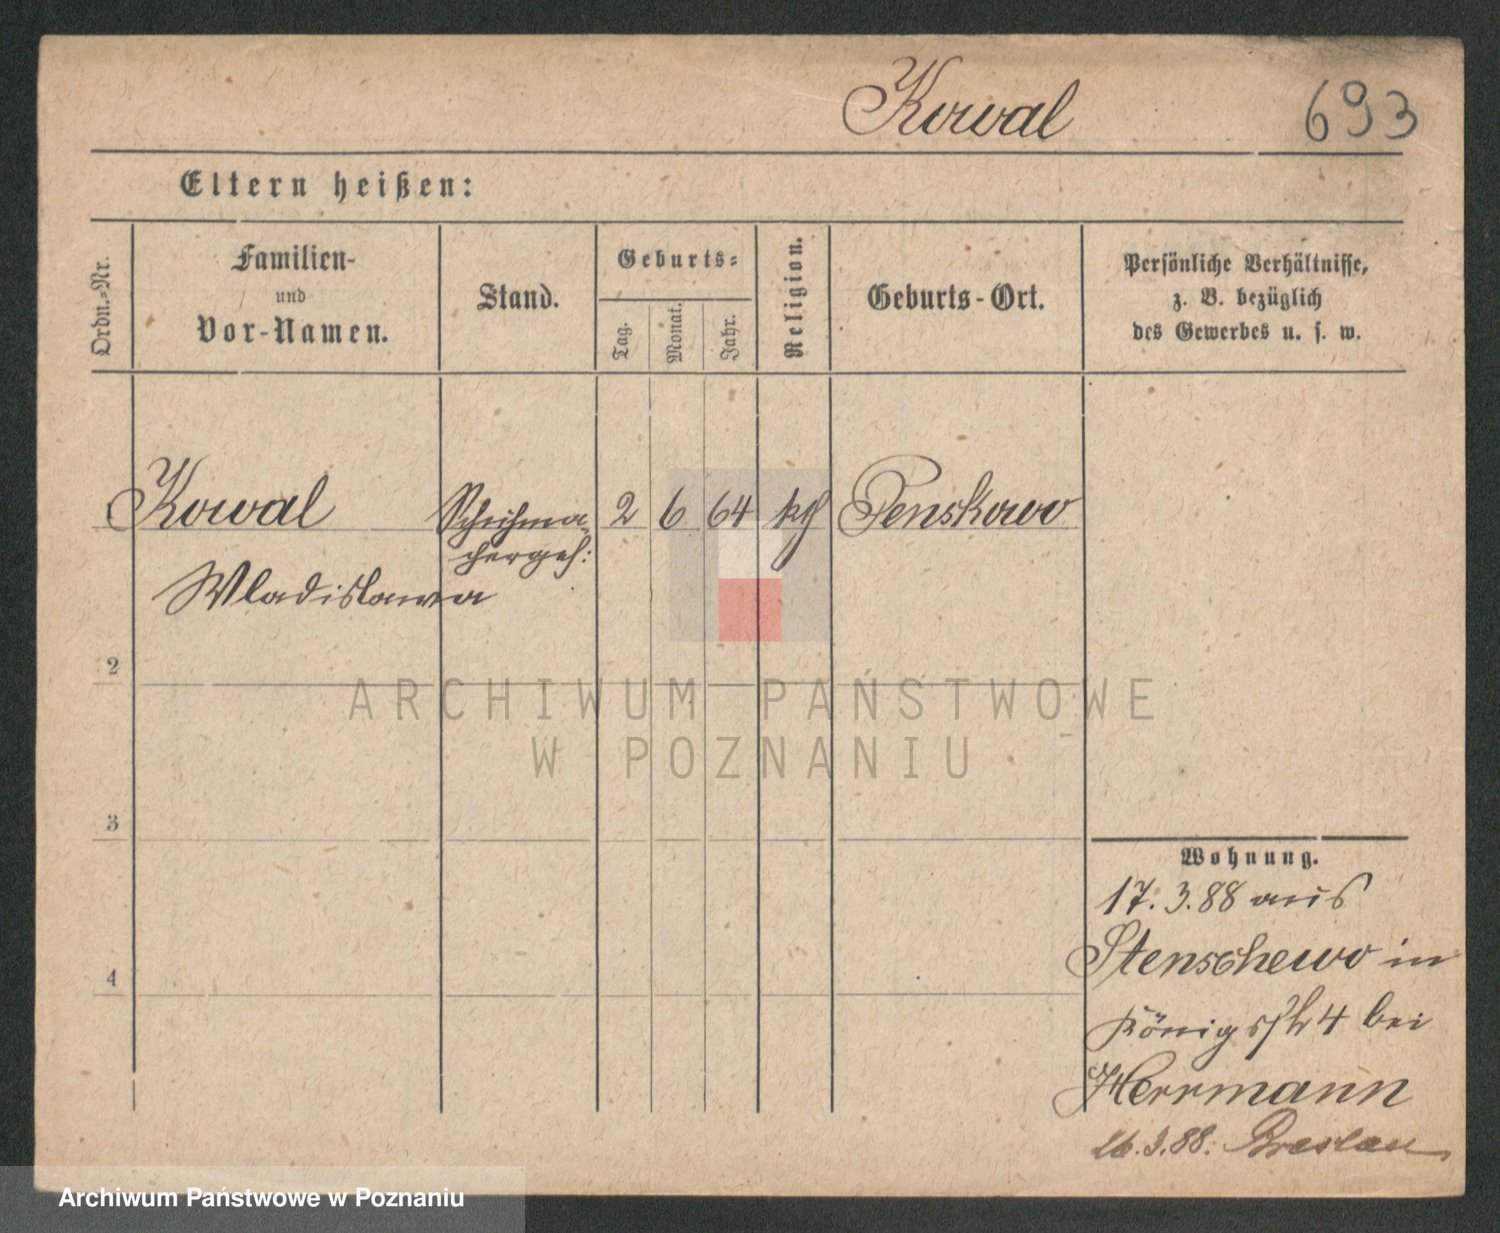 Kowal 693
Eltern heißen:
Ordn.-Nr.
Familien-
und
Vor-Namen.
Stand.
Geburts-
Tag.
Monat.
Jahr.
Religion.
Geburts-Ort.
Persönliche Verhältnisse,
z. B. bezüglich
des Gewerbes u. s. w.
Kowal Schuhma- 2 6 64 kth Penskowo
chergeh:
Wladislawa
2
3
4
Wohnung.
17.3.88 aus
Stenschewo in
Königsstr 4 bei
Herrmann
26.3.88. Breslau
ARCHIWUM PAŃSTWOWE
W POZNANIU
Archiwum Państwowe w Poznaniu